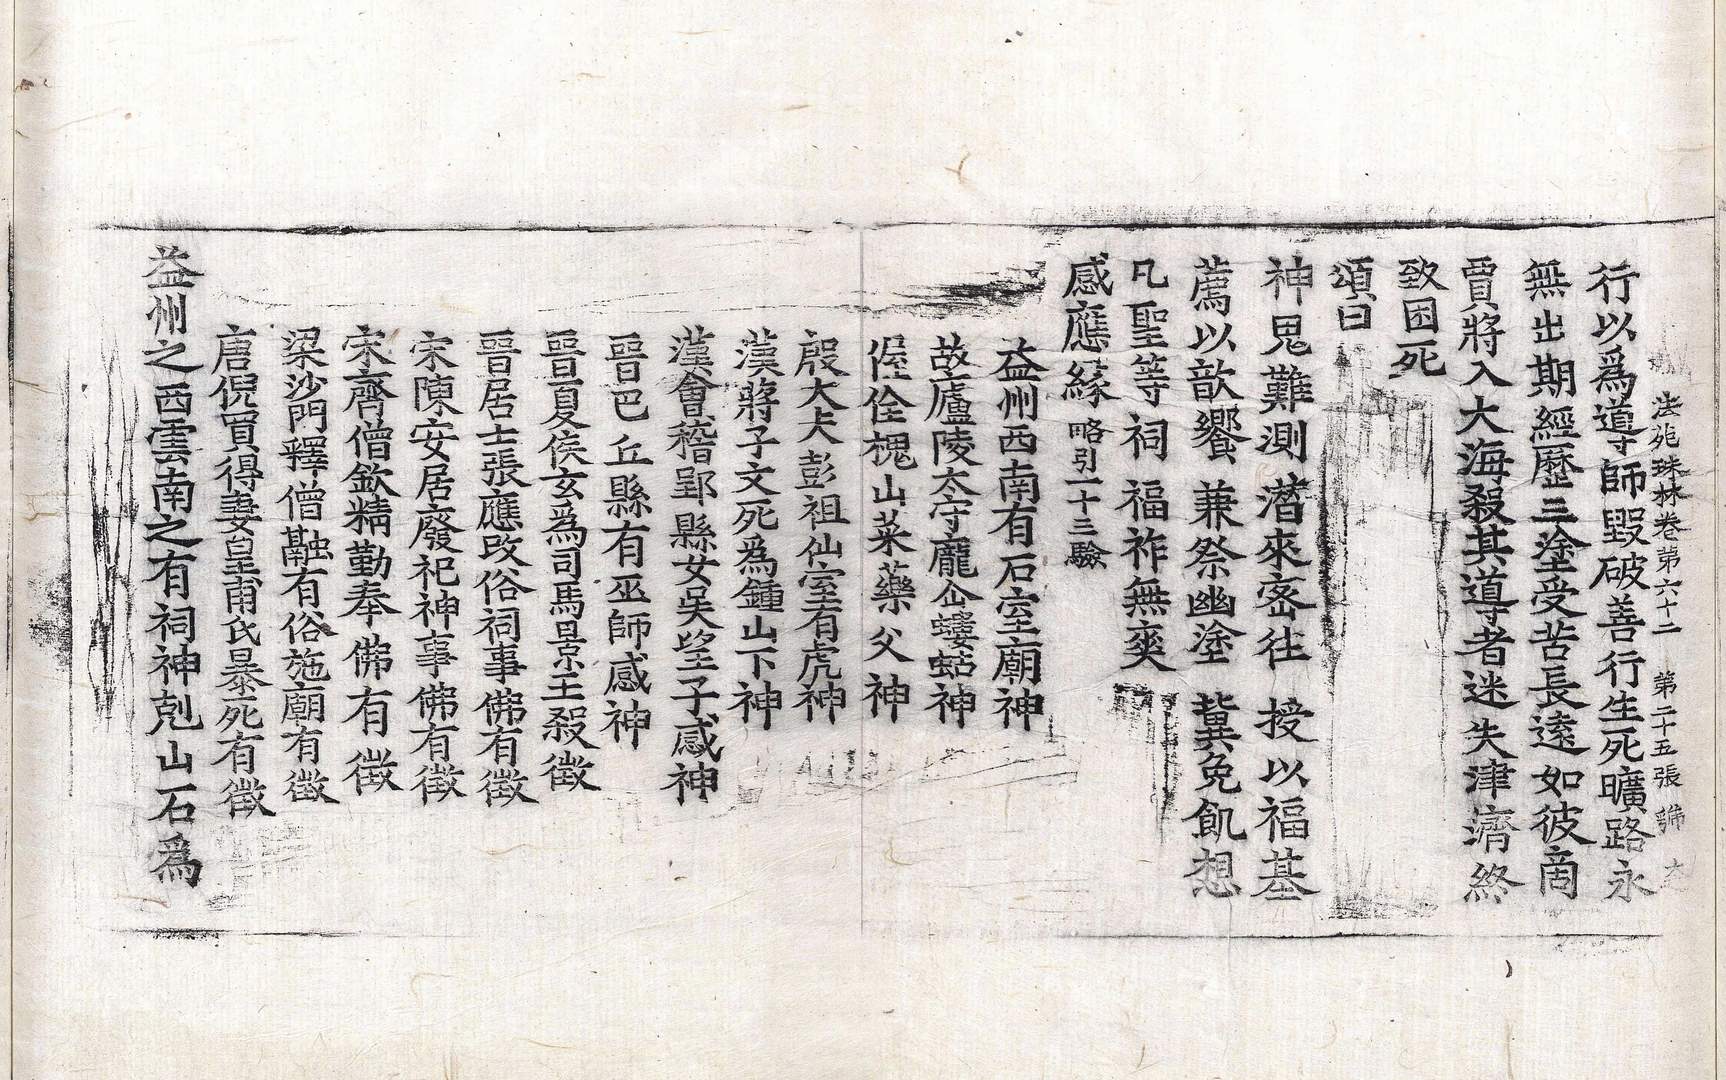 法苑珠林卷第六十二 第二十五張 號
行以爲導師毀破善行生死曠路永
無出期經歷三塗受苦長遠如彼商
賈將入大海殺其導者迷失津濟終
致困死
頌曰
神鬼難測 潛來密往 授以福基
薦以歆饗 兼祭幽塗 冀免飢想
凡聖等祠 福祚無爽
感應緣 略引一十三驗
益州西南有石室廟神
故廬陵太守龐企螻蛄神
偓佺槐山菜藥父神
殷大夫彭祖仙室有虎神
漢蔣子文死爲鍾山下神
漢會稽鄮縣女吳望子感神
晉巴丘縣有巫師感神
晉夏侯玄爲司馬景王殺徵
晉居士張應改俗祠事佛有徵
宋陳安居廢祀神事佛有徵
宋齊僧欽精勤奉佛有徵
梁沙門釋僧融有俗施廟有徵
唐倪買得妻皇甫氏暴死有徵
益州之西雲南之有祠神剋山石爲